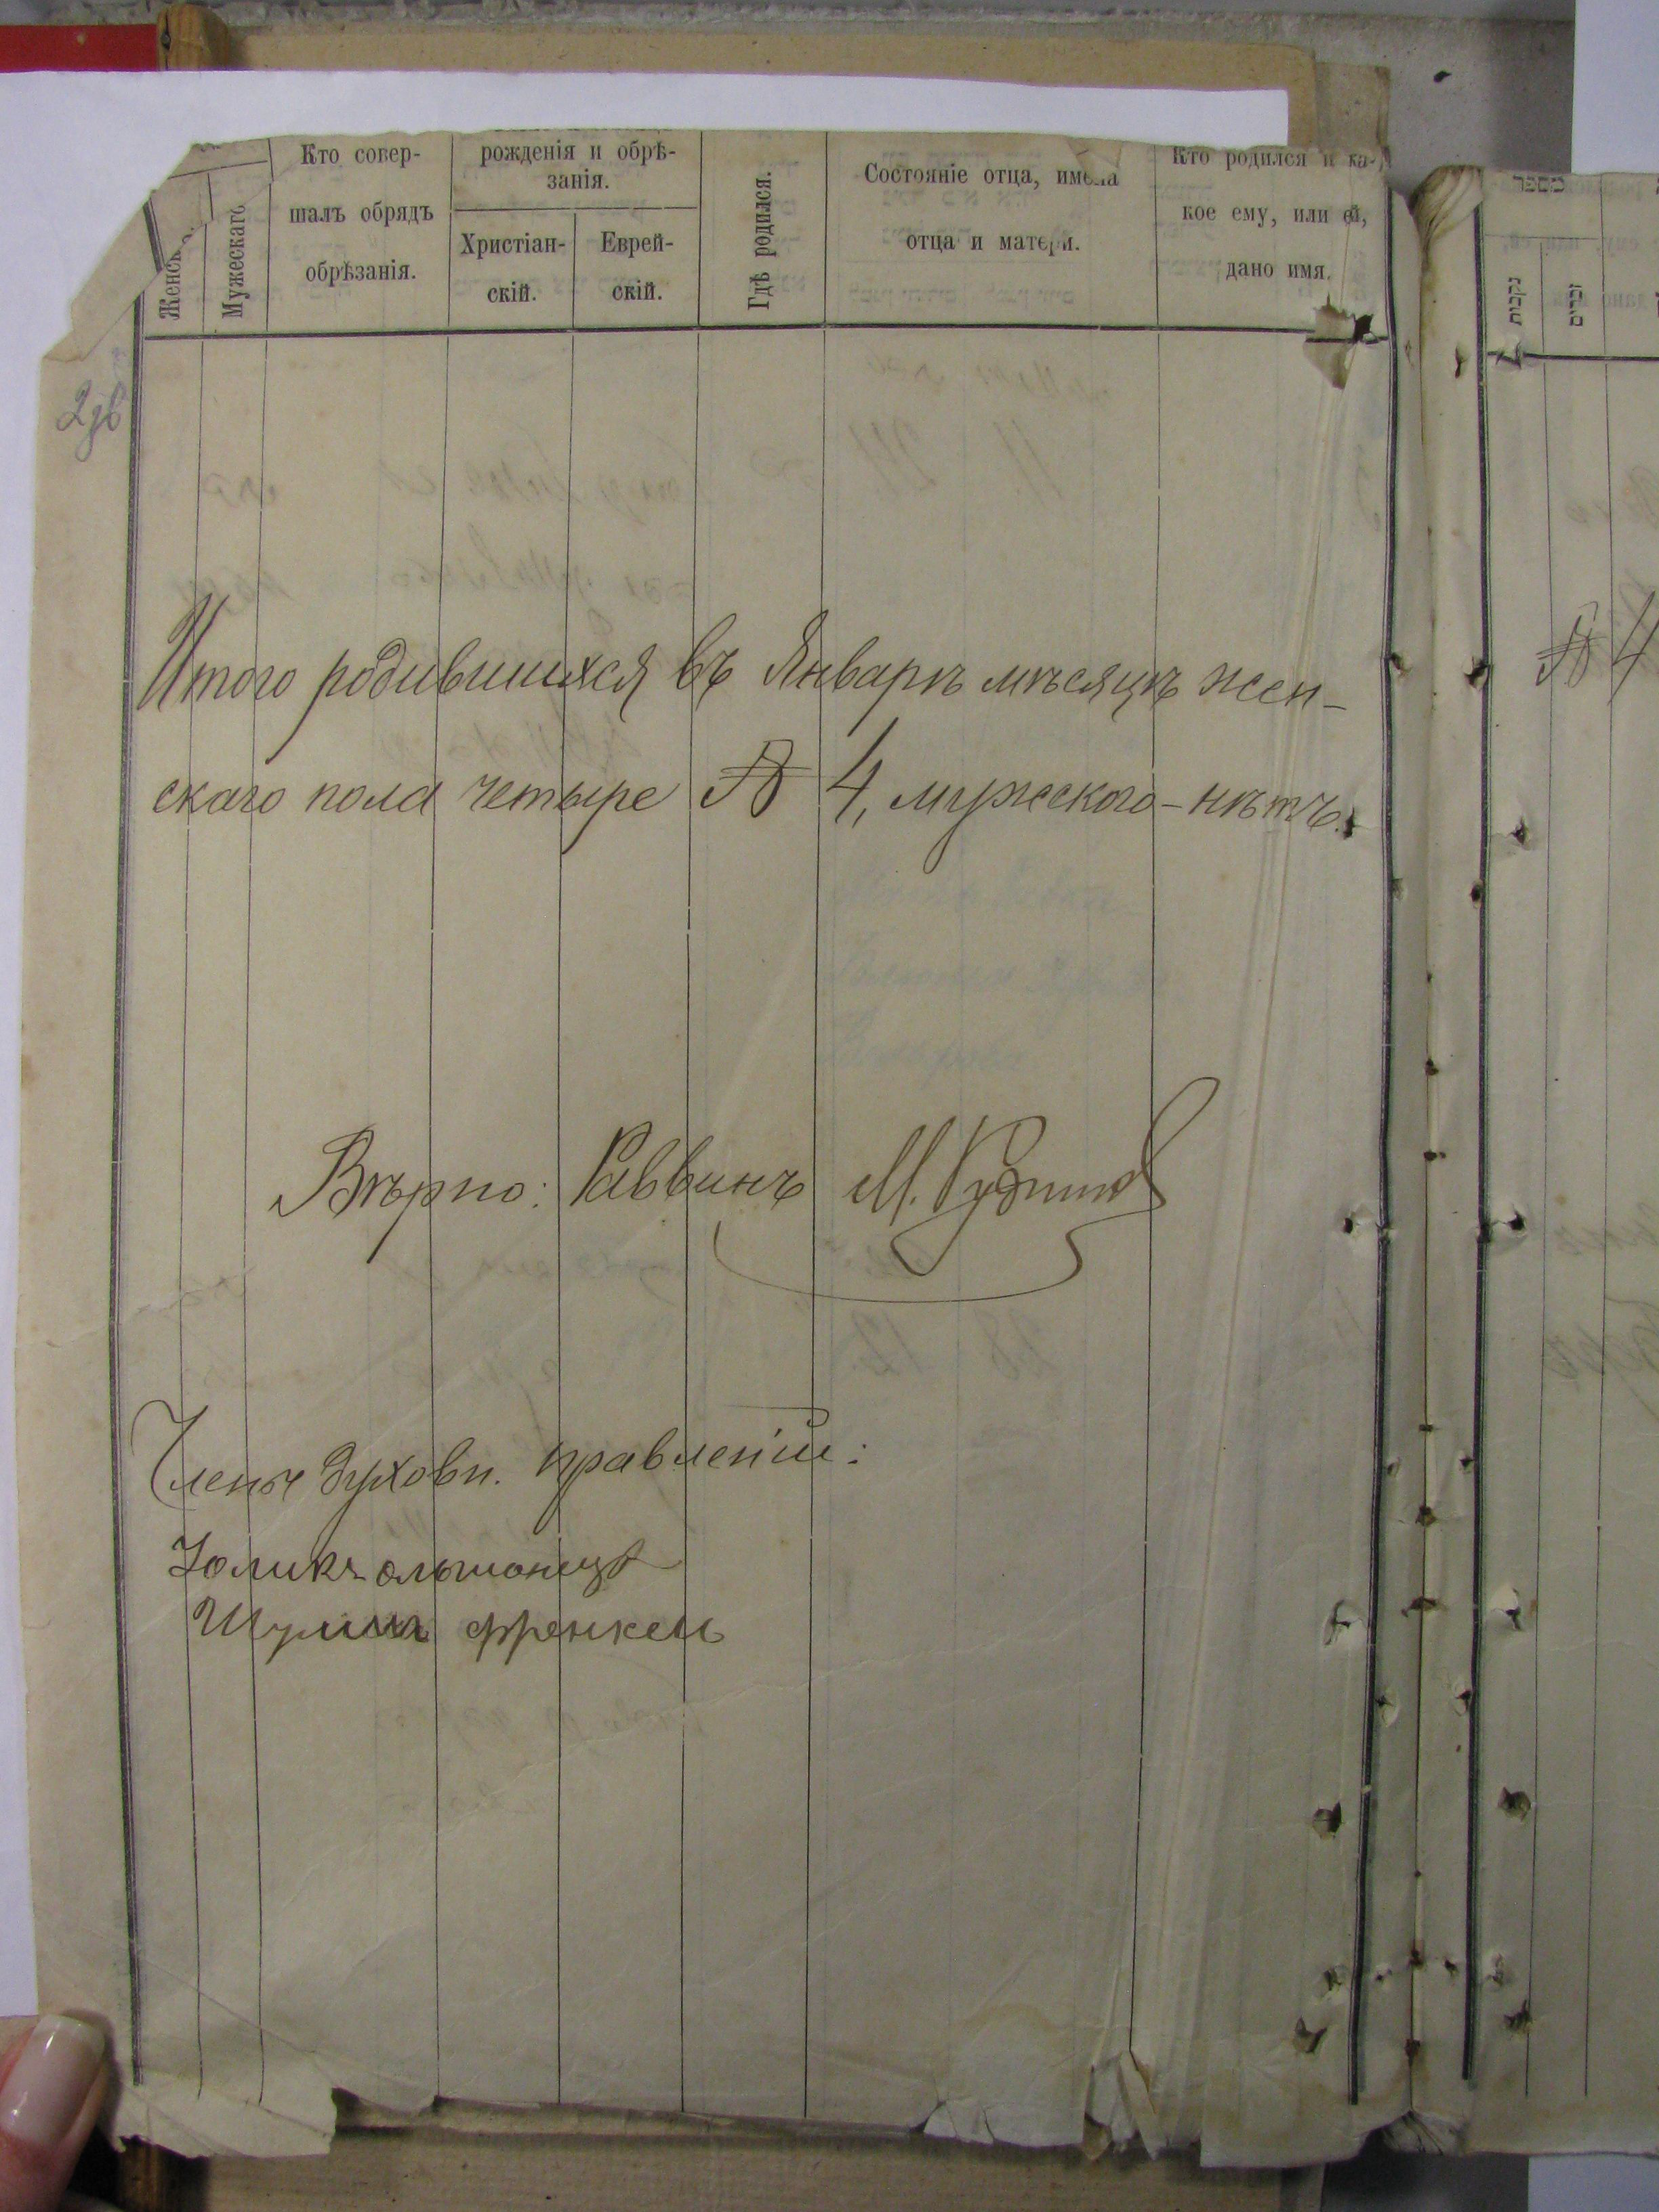 Женск
Мужескаго
Кто совер-
шалъ обрядъ
обрѣзанія.
рожденія и обрѣ-
занія.
Христіан-
скій.
Еврей-
скій.
Гдѣ родился.
Состояніе отца, имена
отца и матери.
Кто родился и ка-
кое ему, или ей,
дано имя.
Итого родившихся въ Январѣ мѣсяцѣ жен-
скаго пола четыре № 4, мужского - нѣтъ.
Вѣрно: Раввинъ М.
Члены духовн. правленій:
Шулим френкель
מספר
נקבות
זכרים
№ 4